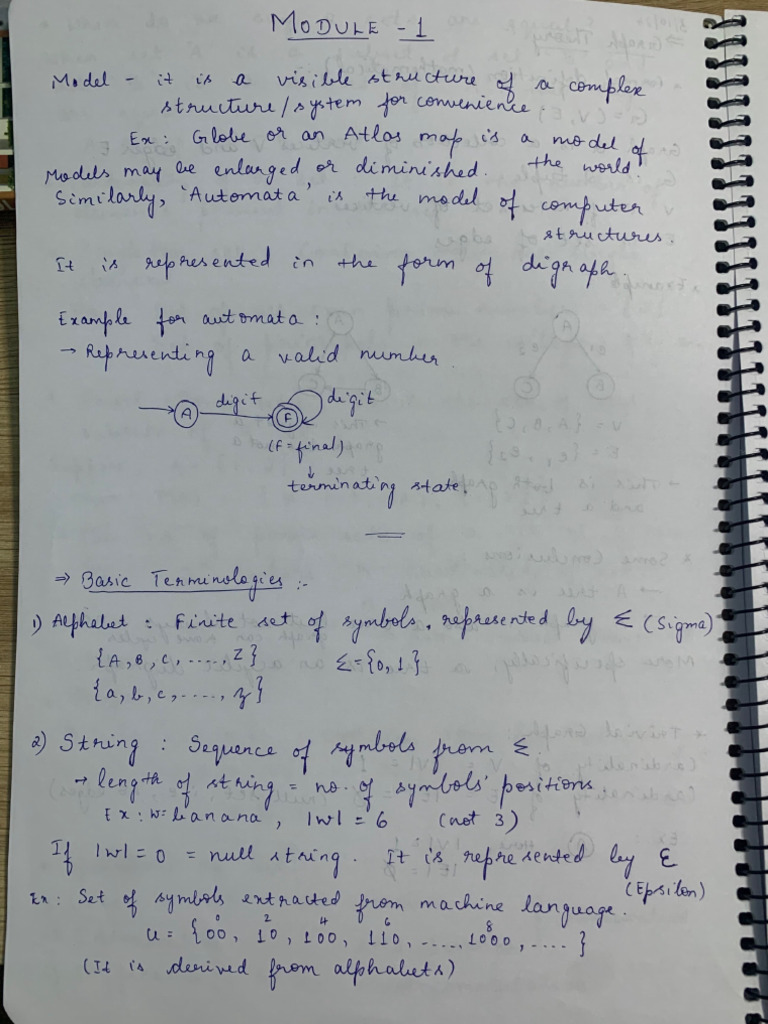 MODULE - 1
Model - it is a visible structure of a complex
structure/system for convenience.
Ex: Globe or an Atlas map is a model of
the world.
Models may be enlarged or diminished.
Similarly, 'Automata' is the model of computer
structures.
It is represented in the form of digraph.
Example for automata:
→ Representing a valid number.
A digit F digit
(F = final)
↓
terminating state.
⇒ Basic Terminologies :-
1) Alphabet : Finite set of symbols, represented by Σ (Sigma)
{A, B, C, ....., Z} Σ = {0, 1}
{a, b, c, ....., z}
2) String : Sequence of symbols from Σ
→ length of string = no. of symbols' positions
Ex: w = banana, |w| = 6 (not 3)
If |w| = 0 = null string. It is represented by ε
(Epsilon)
Ex: Set of symbols extracted from machine language.
0 2 4 6 8
u = {00, 10, 100, 110, ....., 1000, .... }
(It is derived from alphabets)